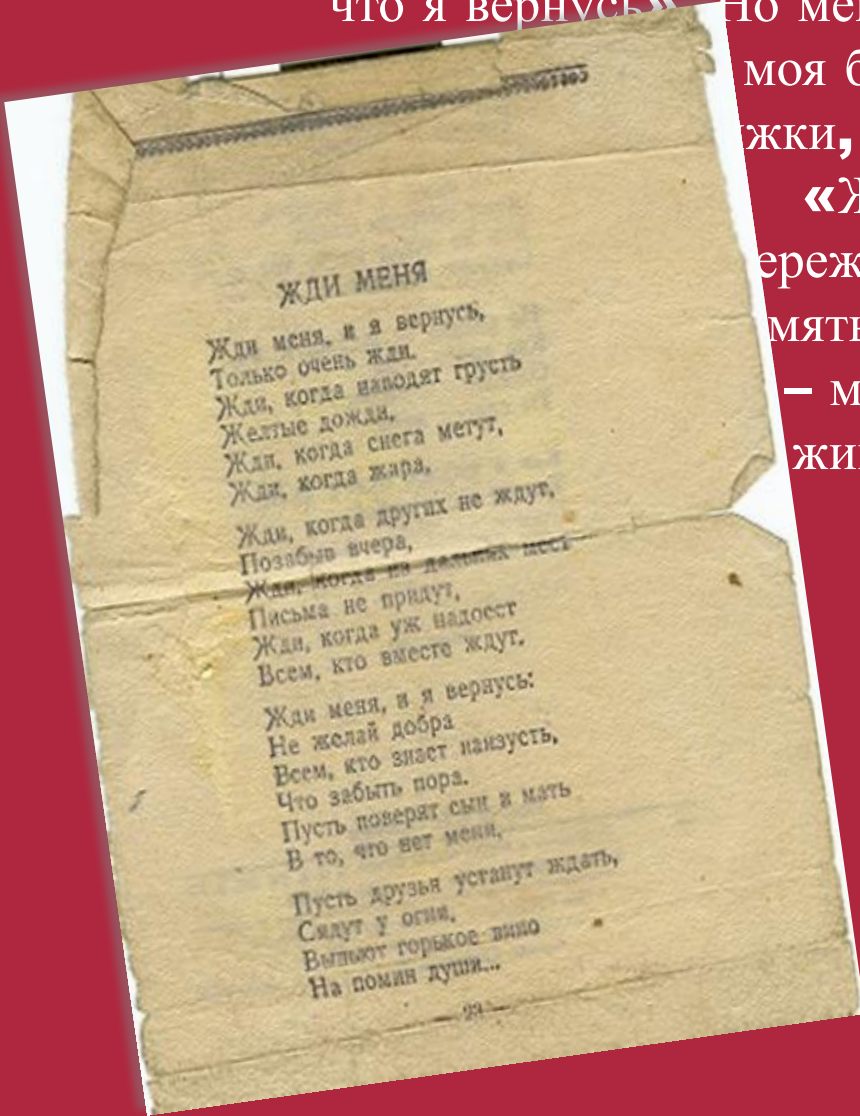 что я вернусь». Но
моя
«Ж
– м
ЖДИ МЕНЯ
Жди меня, и я вернусь,
Только очень жди.
Жди, когда наводят грусть
Желтые дожди,
Жди, когда снега метут,
Жди, когда жара,
Жди, когда других не ждут,
Позабыв вчера,
Жди, когда из дальних мест
Письма не придут,
Жди, когда уж надоест
Всем, кто вместе ждут.
Жди меня, и я вернусь:
Не желай добра
Всем, кто знает наизусть,
Что забыть пора.
Пусть поверят сын и мать
В то, что нет меня,
Пусть друзья устанут ждать,
Сядут у огня,
Выпьют горькое вино
На помин души...